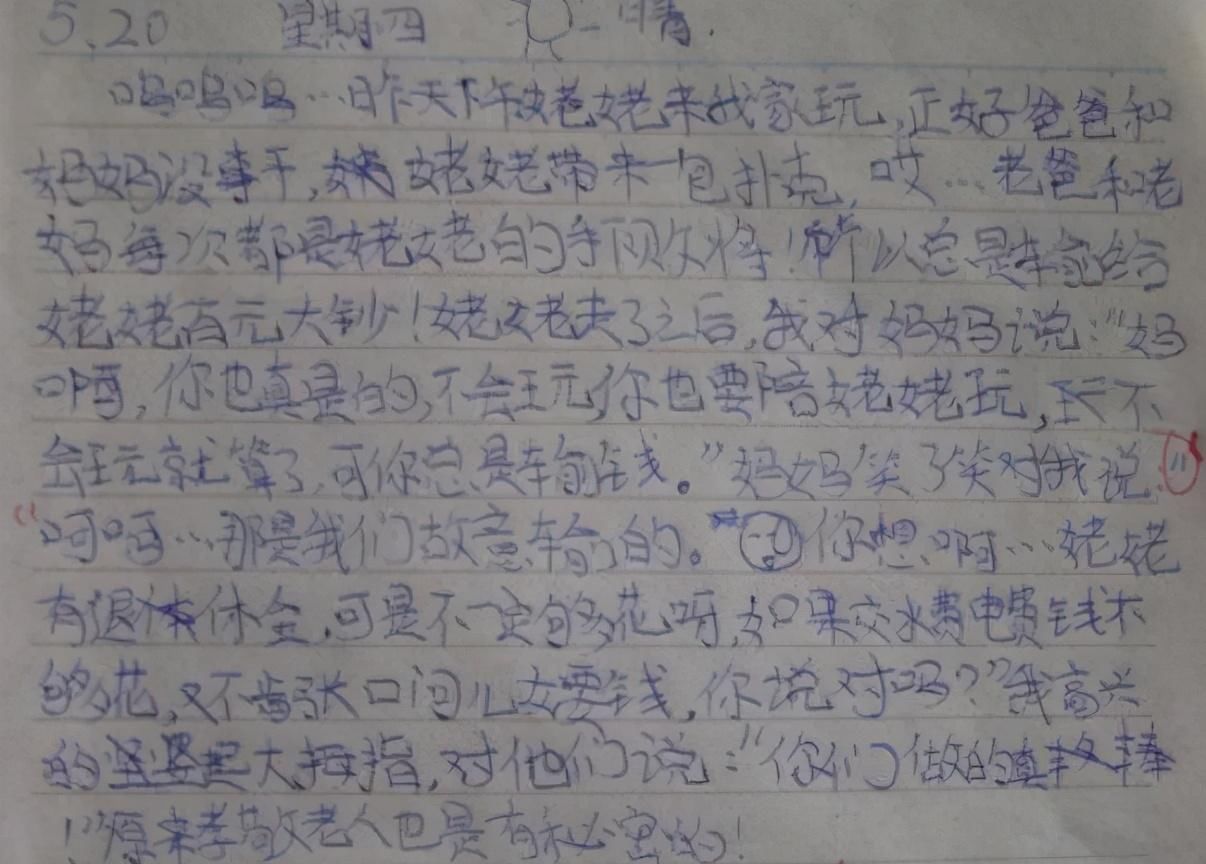 5.20 星期四 晴.
呜呜呜…昨天下午姥姥来我家玩,正好爸爸和
妈妈没事干,姥姥带来一包扑克,哎…老爸和老
妈每次都是姥姥的手下败将!所以总是输给
姥姥百元大钞!姥姥走了之后,我对妈妈说:“妈
呀,你也真是的,不会玩你也要陪姥姥玩,不
会玩就算了,可你总是输钱。”妈妈笑了笑对我说:“
“呵呵…那是我们故意输的。你想啊…姥姥
有退休金,可是不一定够花呀,如果交水费电费钱不
够花,又不肯张口问儿女要钱,你说对吗?”我高兴
的竖起大拇指,对他们说:“你们做的真棒
!”原来孝敬老人也是有秘密的!